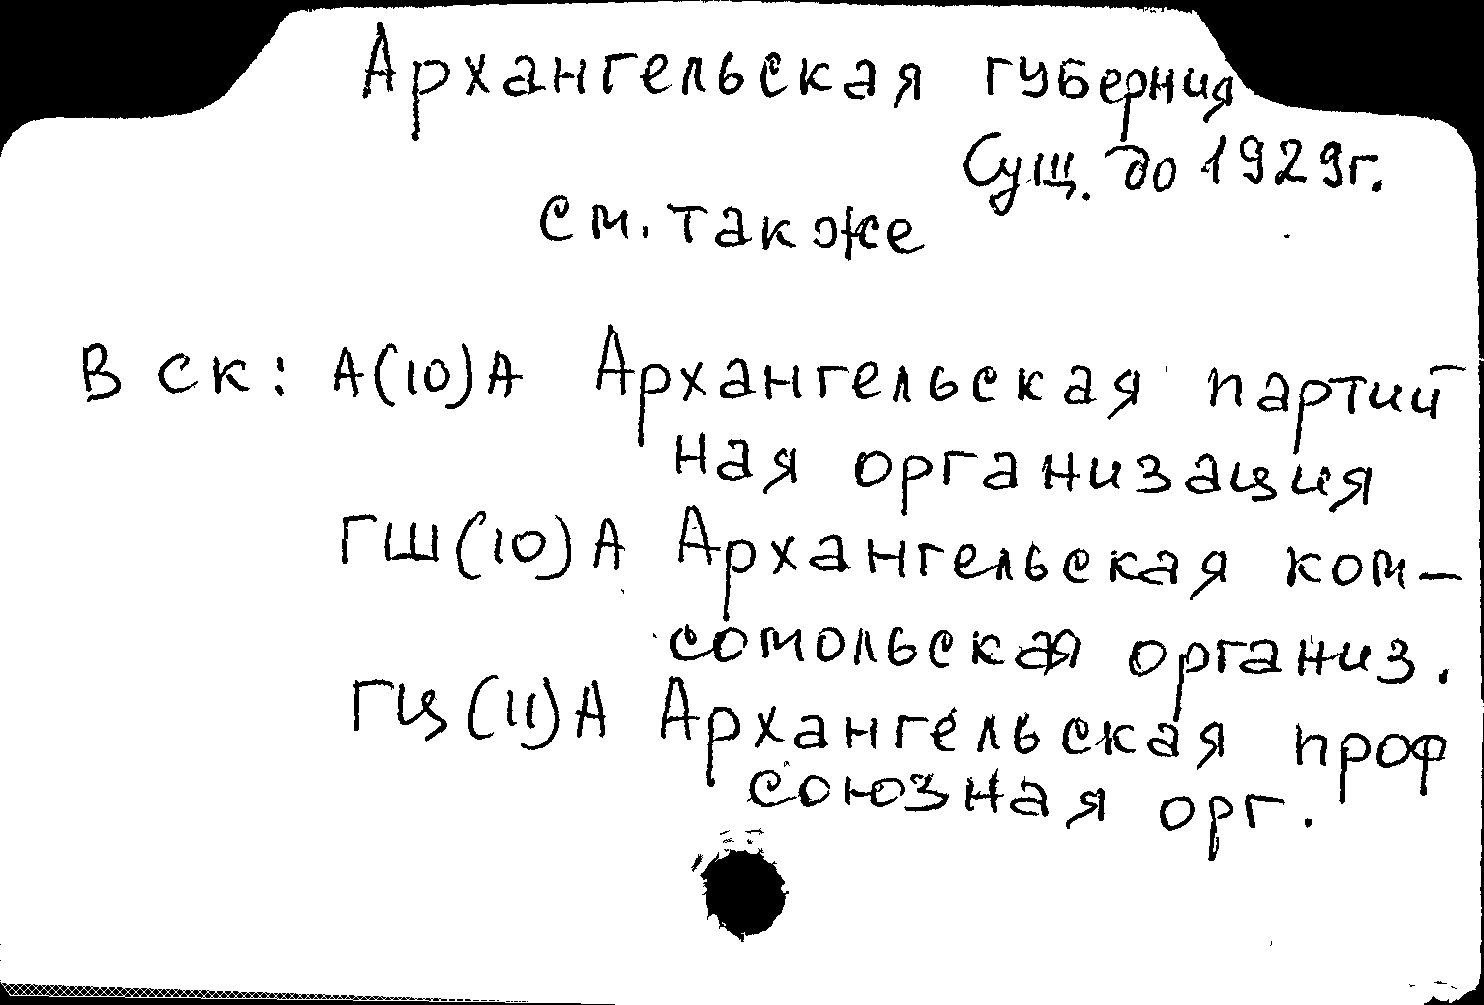 Архангельская губерния
Сущ. до 1929г.
см. также
В ск: А(10)А Архангельская партий
ная организация
ГШ(10)А Архангельская ком-
сомольская организ.
ГЦ(11)А Архангельская проф
союзная орг.